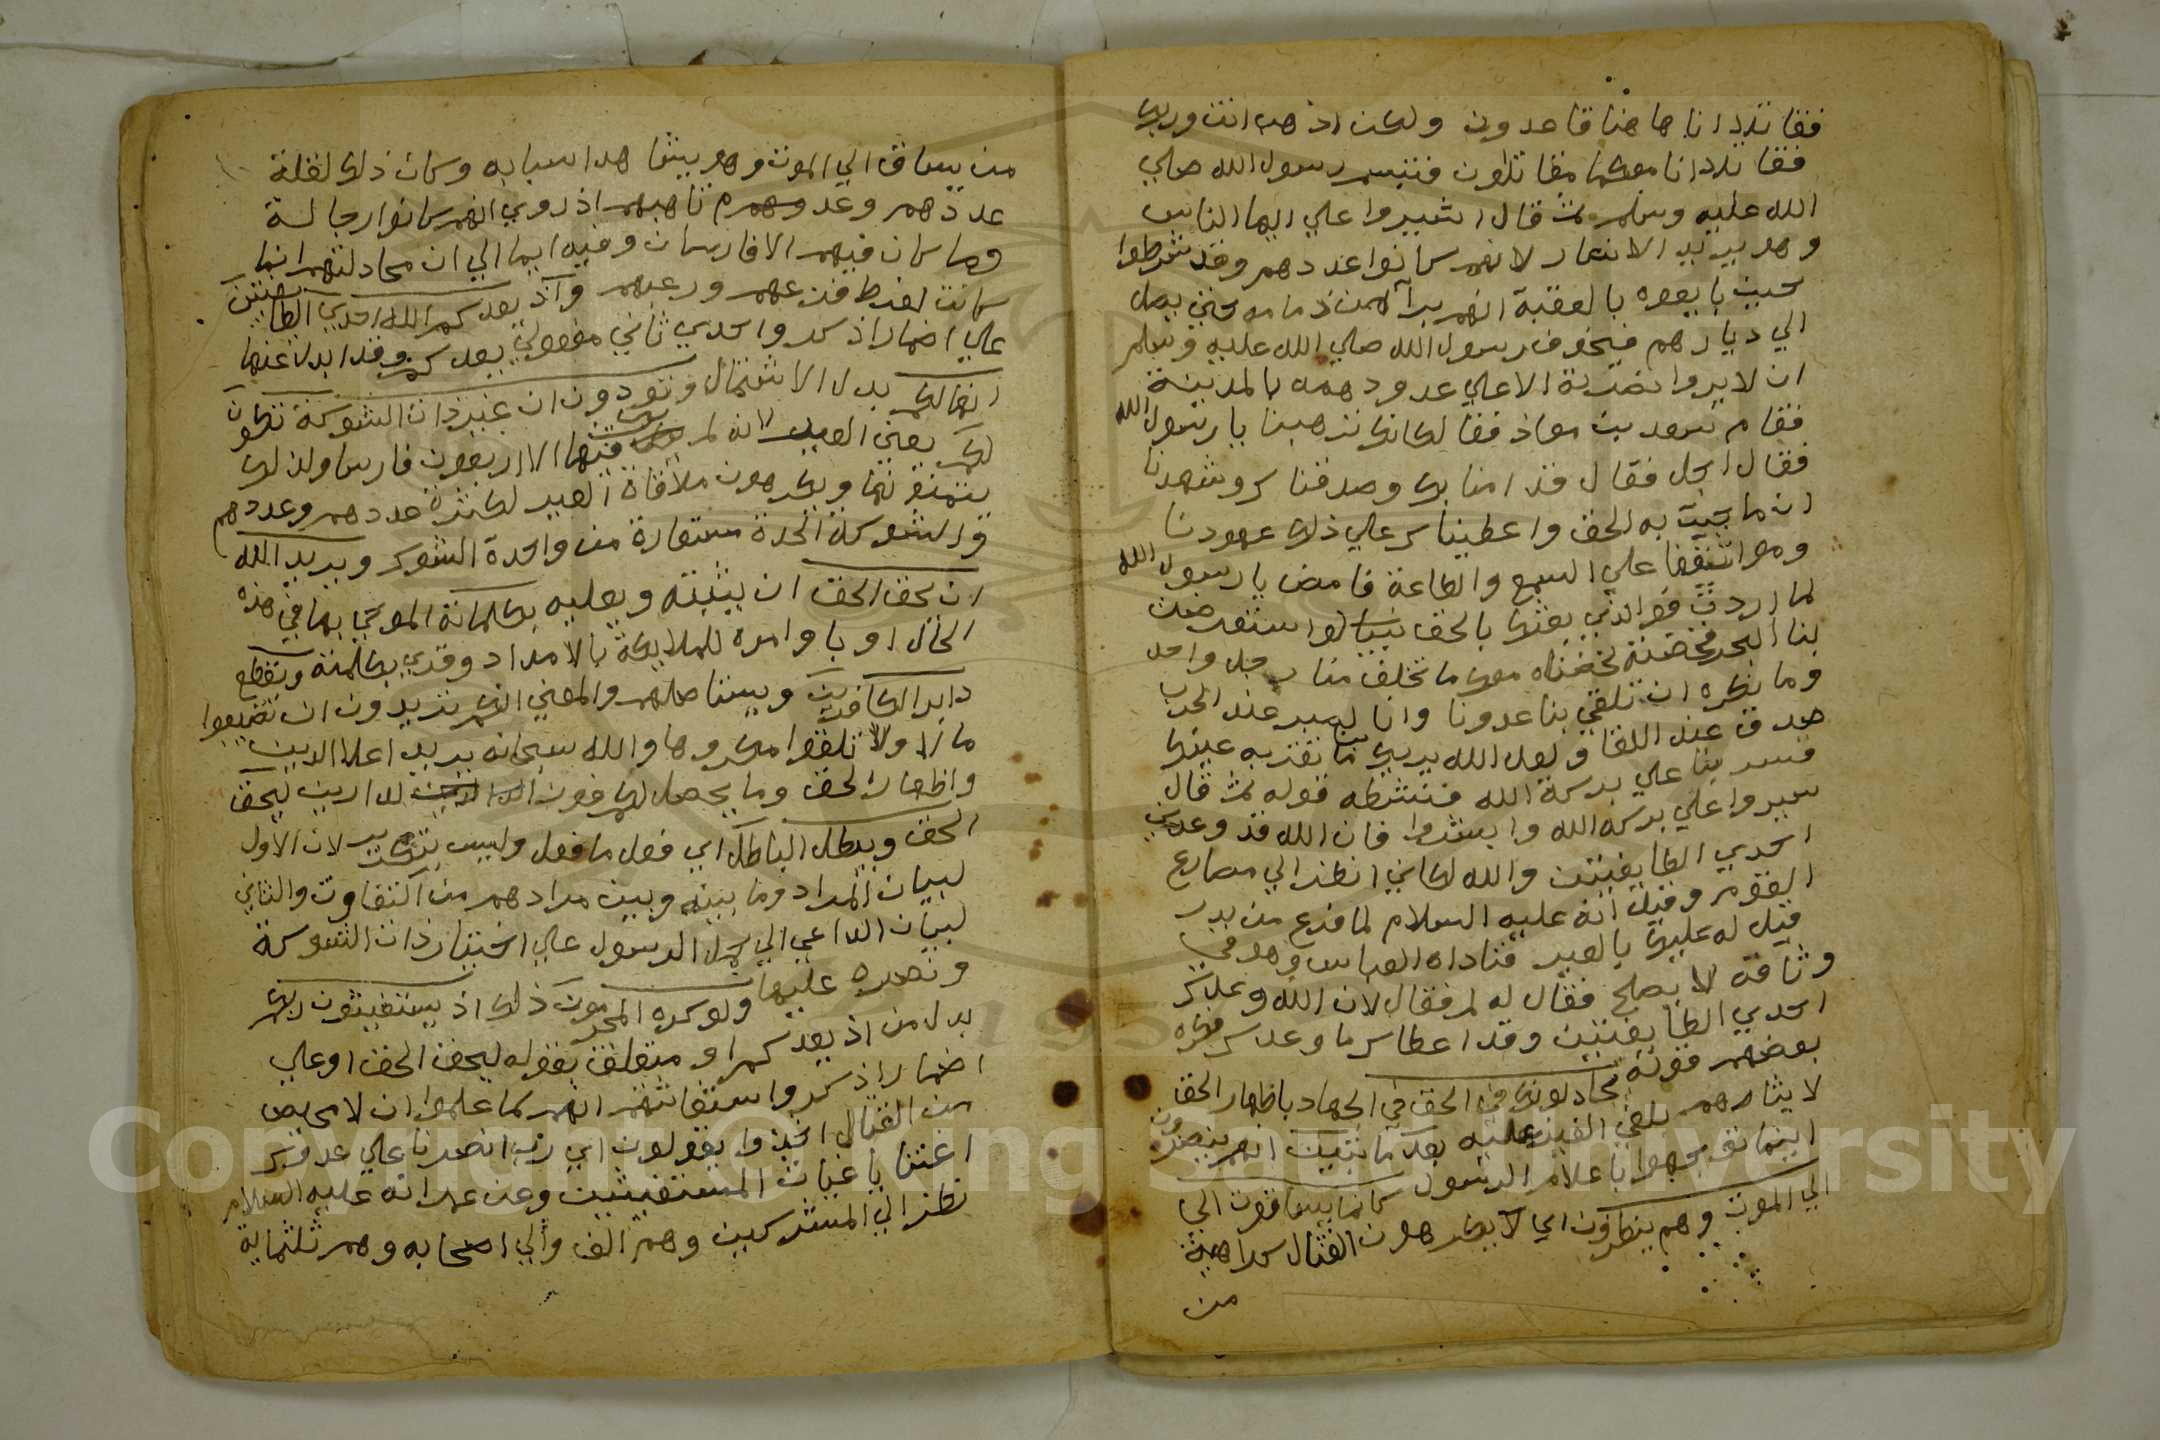 فقاتلا انا هاهنا قاعدون ولكن اذهب انت وربك
فقاتلا انا معكما مقاتلون فتبسم رسول الله صلي
الله عليه وسلم ثم قال اشيروا علي ايها الناس
وهو يريد الانصار لانهم كانوا عددهم وقد شرطوا
حين بايعوه بالعقبة انهم برآ من ذمامه حتي يصل
الي ديارهم فتخوف رسول الله صلي الله عليه وسلم
ان لا يروا نصرته الا علي عدو دهمه بالمدينة
فقام سعد بن معاذ فقال لكانك تريدنا يا رسول الله
فقال اجل فقال قد امنا بك وصدقناك وشهدنا
ان ما جيت به الحق واعطيناك علي ذلك عهودنا
ومواثيقنا علي السمع والطاعة فامض يا رسول الله
لما اردت فوالذي بعثك بالحق نبيا لو استعرضت
بنا البحر فخضته لخضناه معك ما تخلف منا رجل واحد
وما نكره ان تلقي بنا عدونا وانا لصبر عند الحرب
صدق عند اللقا ولعل الله يريك منا ما تقر به عينك
فسر بنا علي بركة الله فنشطه قوله ثم قال
سيروا علي بركه الله وابشروا فان الله قد وعدني
احدي الطايفتين والله لكاني انظر الي مصارع
القوم وقيل انه عليه السلام لما فرغ من بدر
قيل له عليك بالعير فناداه العباس وهو في
وثاقه لا يصلح فقال له لم فقال لان الله وعدك
احدي الطايفتين وقد اعطاك ما وعدك فكره
بعضهم قوله يجادلونك في الحق في الجهاد باظهار الحق
لايثارهم تلقي العير عليه بعد ما تبين انهم ينصرون
اينما توجهوا باعلام الرسول كانما يساقون الي
الي الموت وهم ينظرون اي يكرهون القتال كراهية
من
من يساق الي الموت وهو يشاهد اسبابه وكان ذلك لقلة
عددهم وعدم تاهبهم اذ روي انهم كانوا رجالة
وما كان فيهم الا فارسان وفيه ايما الي ان مجادلتهم انما
كانت لفرط فزعهم ورعبهم واذ يعدكم الله احدي الطايفتين
علي اضمار اذكر واحدي ثاني مفعولي يعدكم وقد ابدل عنها
انها لكم بدل الاشتمال وتودون ان غير ذات الشوكة تكون
لكم يعني العير لانه لم يكن فيها الا اربعون فارسا ولذلك
يتمنونها ويكرهون ملاقاة العير لكثرة عددهم وعددهم
والشوكة الحدة مستعارة من واحدة الشوك ويريد الله
ان يحق الحق ان يثبته ويعليه بكلماته الموحي بها في هذه
الحال او باوامره للملايكة بالامداد وقري بكلمته ويقطع
دابر الكافرين ويستاصلهم والمعني انكم تريدون ان تصيبوا
مالا ولا تلقوا مكروها والله سبحانه يريد اعلا الدين
واظهار الحق وما يحصل لكم فوز الدارين ليحق
الحق ويبطل الباطل اي فعل ما فعل وليس بتكرير لان الاول
لبيان المراد وما بينه وبين مرادهم من التفاوت والثاني
لبيان الداعي الي حمل الرسول علي اختيار ذات الشوكة
ونصره عليها ولو كره المجرمون ذلك اذ يستغيثون ربكم
بدل من اذ يعدكم او متعلق بقوله ليحق الحق او علي
اضمار اذكر واستغاثتهم انهم لما علموا ان لا محيص
من القتال اخذوا يقولون اي رب انصرنا علي عدوك
اغثنا يا غياث المستغيثين وعن عمر انه عليه السلام
نظر الي المشركين وهم الف والي اصحابه وهم ثلثماية
Copyright © King Saud University